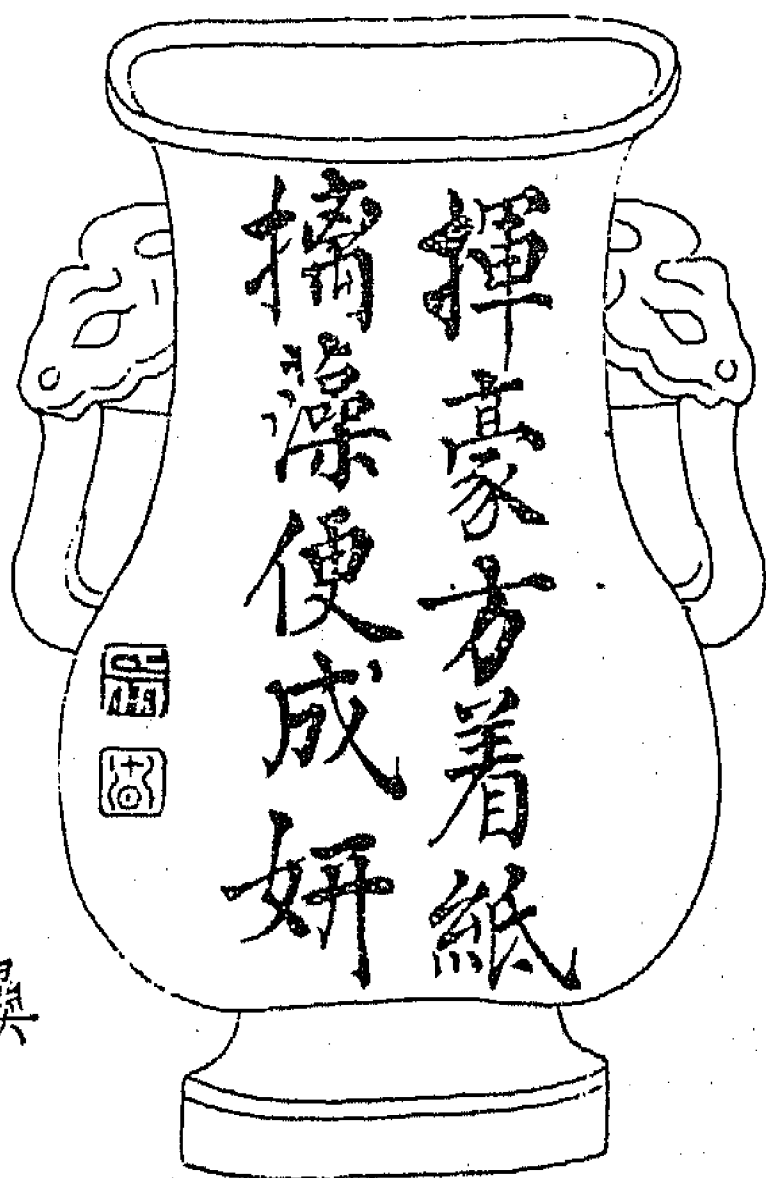 揮豪方着紙
摛藻便成妍